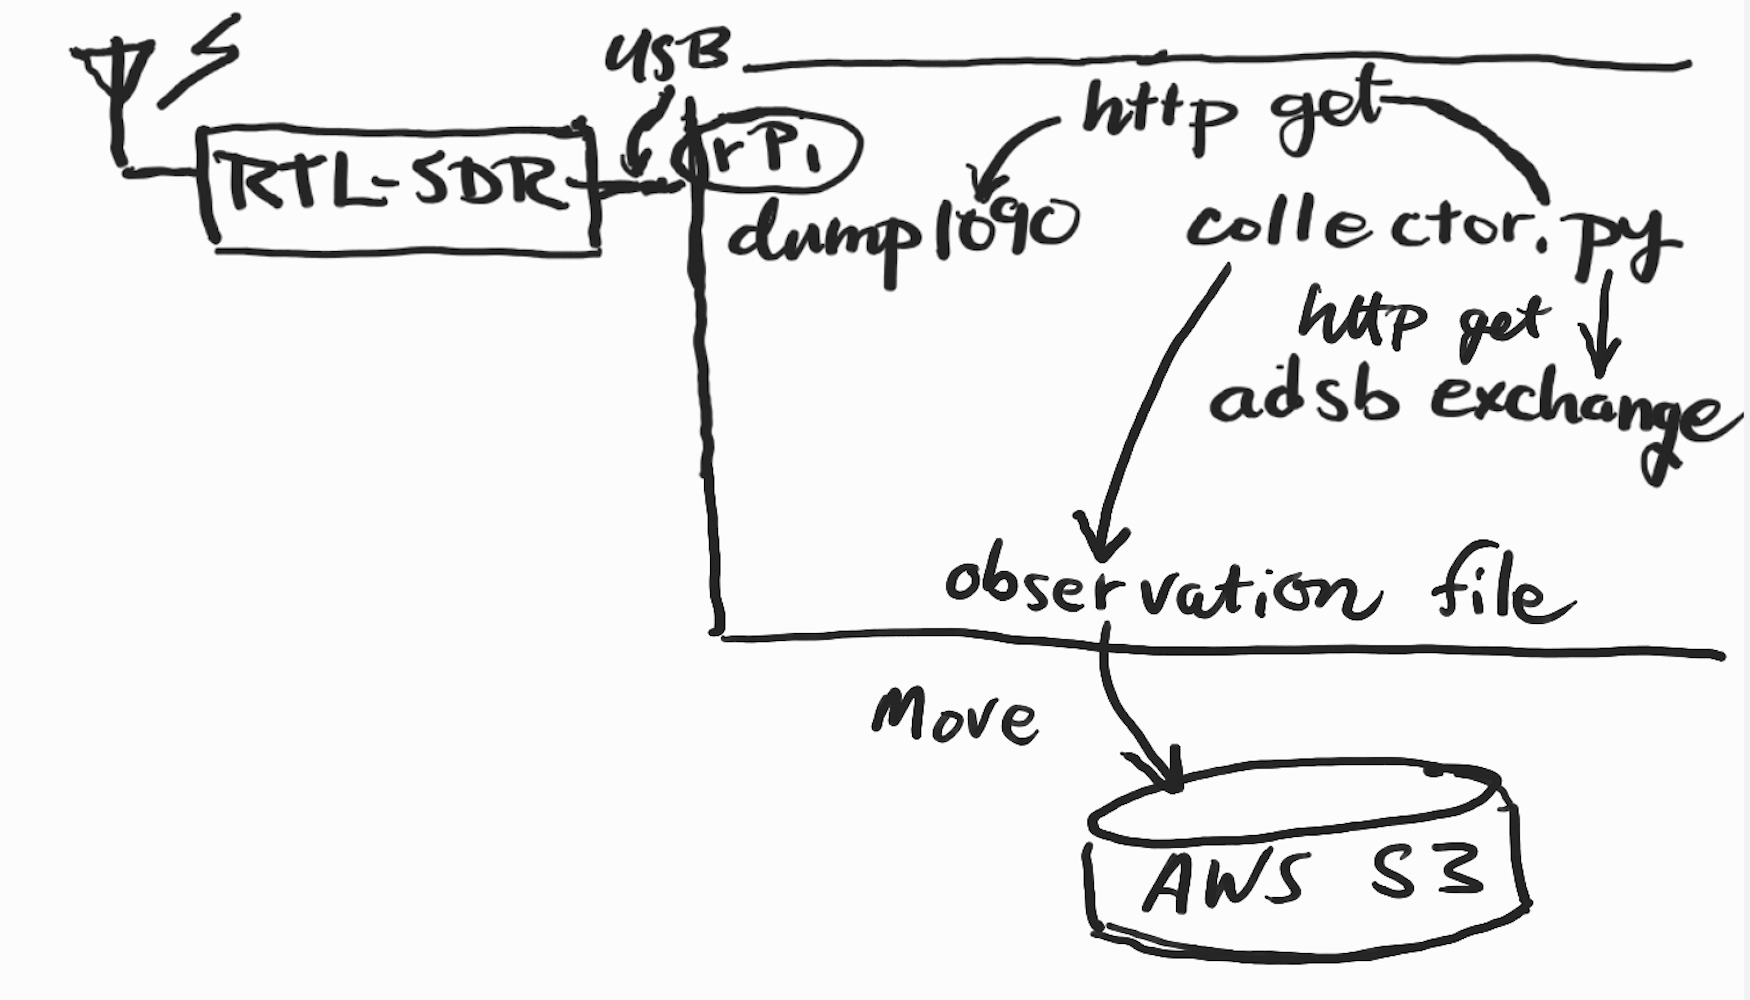 USB
http get
RTL-SDR
rPi
dump1090
collector.py
http get
adsb exchange
observation file
Move
AWS S3